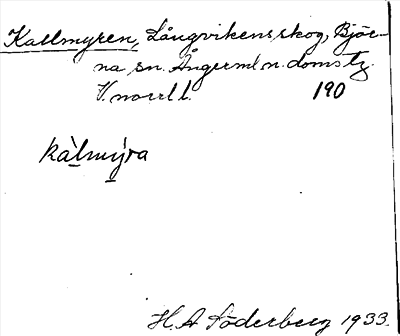 Kallmyren, Långvikens skog, Bjär-
na sn. Ångerml n. doms tg.
V. norrl l. 190
kàlmy̱ra
H. A Söderberg 1933.